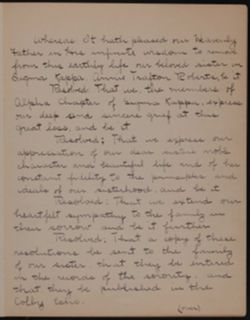 Whereas: It hath pleased our Heavenly
Father in His infinite wisdom to remove
from this earthly life our beloved sister in
Sigma Kappa, Annie Trafton Roberts, be it
Resolved: That we the members of
Alpha Chapter of Sigma Kappa, express
our deep and sincere grief at this
great loss, and be it
Resolved: That we express our
appreciation of our dear sister's noble
character and beautiful life and of her
constant fidelity to the principles and
ideals of our sisterhood, and be it
Resolved: That we extend our
heartfelt sympathy to the family in
their sorrow and be it further
Resolved: That a copy of these
resolutions be sent to the family
of our sister, that they be entered
in the records of the sorority, and
that they be published in the
Colby Echo.
(over)